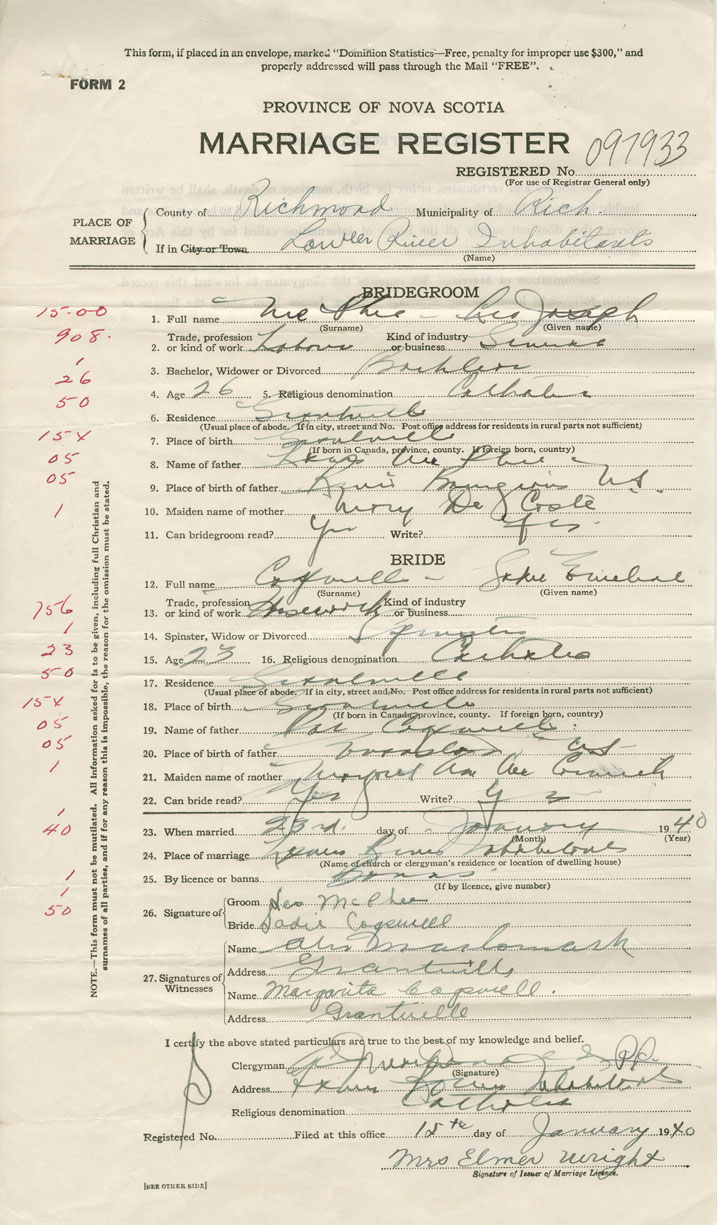 This form, if placed in an envelope, marked "Dominion Statistics—Free, penalty for improper use $300," and
properly addressed will pass through the Mail "FREE".
FORM 2
PROVINCE OF NOVA SCOTIA
MARRIAGE REGISTER
097933
REGISTERED No.
(For use of Registrar General only)
PLACE OF MARRIAGE
County of Richmond Municipality of Rich.
If in City or Town Lower River Inhabitants
(Name)
BRIDEGROOM
15.00
1. Full name Mc Phee - Leo Joseph
(Surname) (Given name)
908.
2. Trade, profession or kind of work Labour Kind of industry or business
1
3. Bachelor, Widower or Divorced Bachelor
26
4. Age 26 5. Religious denomination Catholic
50
6. Residence Grantville
(Usual place of abode. If in city, street and No. Post office address for residents in rural parts not sufficient)
154
7. Place of birth Grantville
(If born in Canada, province, county. If foreign born, country)
05
8. Name of father Mc Phee
05
9. Place of birth of father River Bourgeois N.S.
1
10. Maiden name of mother Mary De Coste
11. Can bridegroom read? Yes Write? Yes
BRIDE
12. Full name Cogswell - Sadie
(Surname) (Given name)
756
13. Trade, profession or kind of work Housework Kind of industry or business
1
14. Spinster, Widow or Divorced Spinster
23
15. Age 23 16. Religious denomination Catholic
50
17. Residence Grantville
(Usual place of abode. If in city, street and No. Post office address for residents in rural parts not sufficient)
154
18. Place of birth Grantville
(If born in Canada, province, county. If foreign born, country)
05
19. Name of father Cogswell
05
20. Place of birth of father
1
21. Maiden name of mother Margaret Ann Mc
22. Can bride read? Yes Write? Yes
1
40
23. When married 23rd. day of January 1940
(Month) (Year)
24. Place of marriage Lower River Inhabitants
(Name of church or clergyman's residence or location of dwelling house)
1
25. By licence or banns Banns
(If by licence, give number)
1
50
26. Signature of
Groom Leo McPhee
Bride Sadie Cogswell
27. Signatures of Witnesses
Name
Address Grantville
Name Margarita Cogswell.
Address Grantville
NOTE.—This form must not be mutilated. All information asked for is to be given, including full Christian and
surnames of all parties, and if for any reason this is impossible, the reason for the omission must be stated.
I certify the above stated particulars are true to the best of my knowledge and belief.
Clergyman P.P.
(Signature)
Address Lower River Inhabitants
Religious denomination Catholic
Registered No. Filed at this office 15th day of January 1940
Mrs Elmer Wright
Signature of Issuer of Marriage Licence.
[SEE OTHER SIDE]